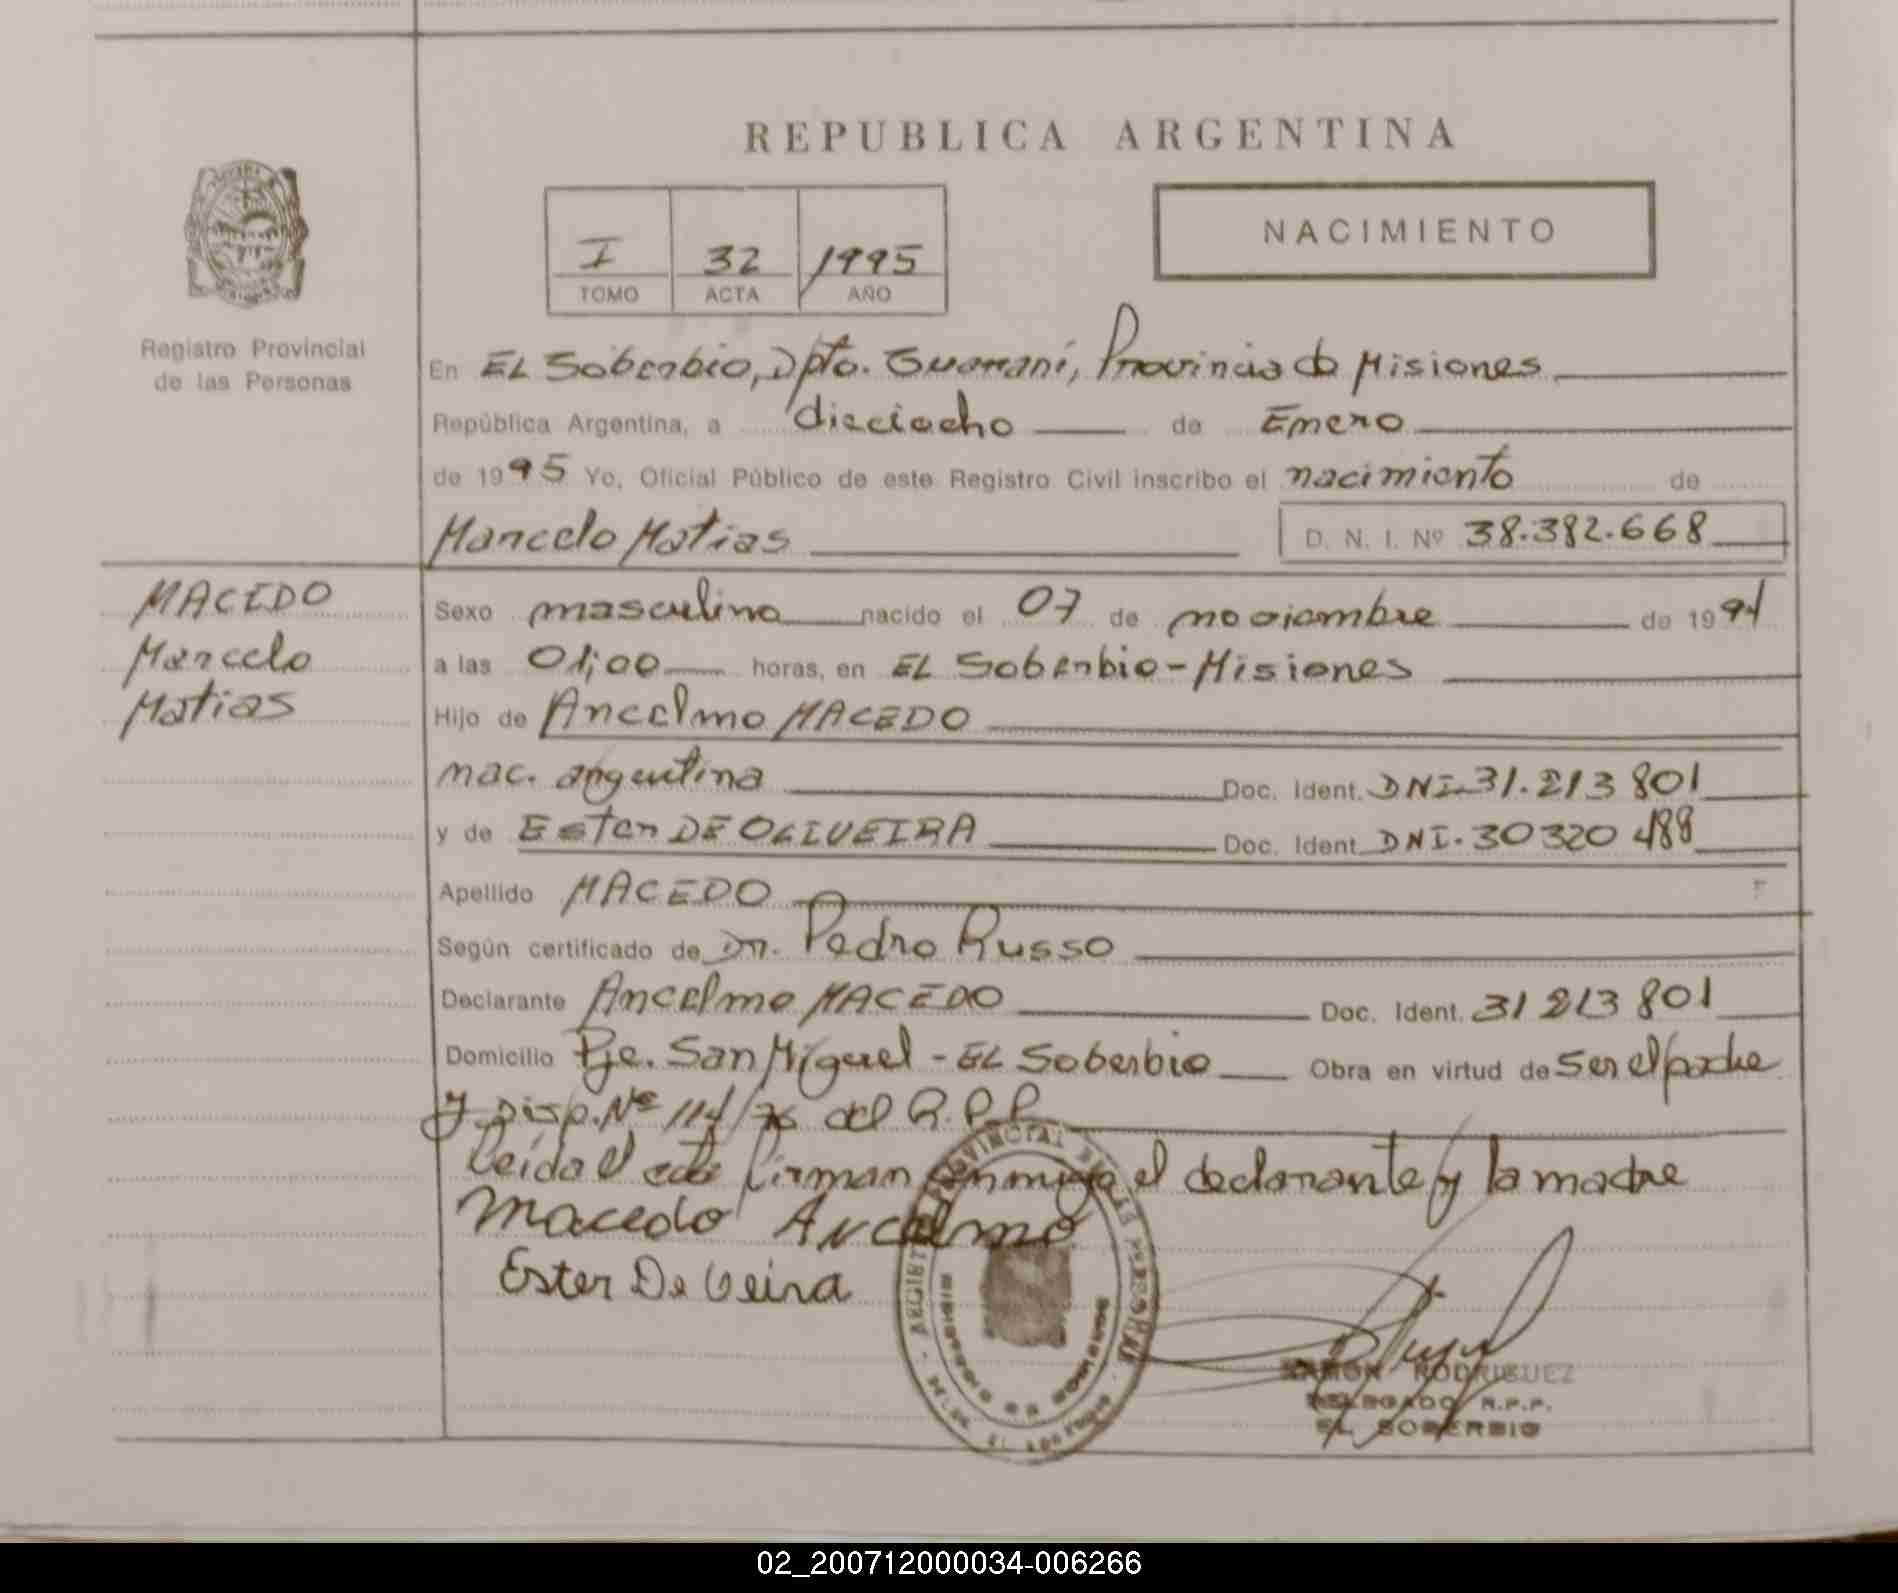 REPUBLICA ARGENTINA
I 32 1995
TOMO ACTA AÑO
NACIMIENTO
Registro Provincial
de las Personas
En EL Soberbio, Dpto. Guaraní, Provincia de Misiones
República Argentina, a dieciocho de Enero
de 1995 Yo, Oficial Público de este Registro Civil inscribo el nacimiento de
Marcelo Matias D. N. I. Nº 38.382.668
MACEDO
Marcelo
Matias
Sexo masculino nacido el 07 de noviembre de 1994
a las 01;00 horas, en EL Soberbio-Misiones
Hijo de Ancelmo MACEDO
nac. argentina Doc. Ident. DNI-31.213 801
y de Ester DE OLIVEIRA Doc. Ident. DNI. 30320 488
Apellido MACEDO
Según certificado de Dr. Pedro Russo
Declarante Ancelmo MACEDO Doc. Ident. 31 213 801
Domicilio Pje. San Miguel - EL Soberbio Obra en virtud de Ser el padre
y Disp. Nº 114/76 del R.P.P.
Leída el acta firman conmigo el declarante y la madre
Macedo Ancelmo
Ester De Veira
REGISTRO PROVINCIAL DE LAS PERSONAS
RAMON RODRIGUEZ
DELEGADO R.P.P.
EL SOBERBIO
02_200712000034-006266